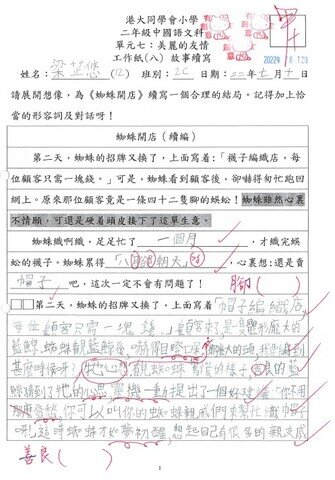 港大同學會小學
二年級中國語文科
單元七：美麗的友情
工作紙(八) 故事續寫
姓名：梁芷悠(12) 班別：2C 日期：二二年七月十日
請展開想像，為《蜘蛛開店》續寫一個合理的結局。記得加上恰
當的形容詞及對話呀！
蜘蛛開店（續編）
第二天，蜘蛛的招牌又換了，上面寫着：「襪子編織店，每
位顧客只需一塊錢。」可是，蜘蛛看到顧客後，卻嚇得匆忙跑回
網上。原來那位顧客竟是一條四十二隻腳的蜈蚣！蜘蛛雖然心裏
不情願，可還是硬着頭皮接下了這單生意。
蜘蛛織啊織，足足忙了一個月，才織完蜈
蚣的襪子。蜘蛛累得「八腳朝天」，心裏想：還是賣
帽子吧，這次一定不會有問題了！
腳( )
第二天，蜘蛛的招牌又換了，上面寫着「帽子編織店，
每位顧客只需一塊錢。」顧客來了是體形龐大的
藍鯨，蜘蛛觀藍鯨後，嚇得目瞪口呆
甚麼時候呀！忙心 蜘蛛 的樣子，良的藍
鯨猜到了牠的心思，靈機一動提出了個好建議：「你不用
那麼發愁，你可以叫你的蜘蛛親戚們來幫忙織帽子
呀！」這時蜘蛛才如夢初醒，想起自己有很多的親戚
善良( )
1